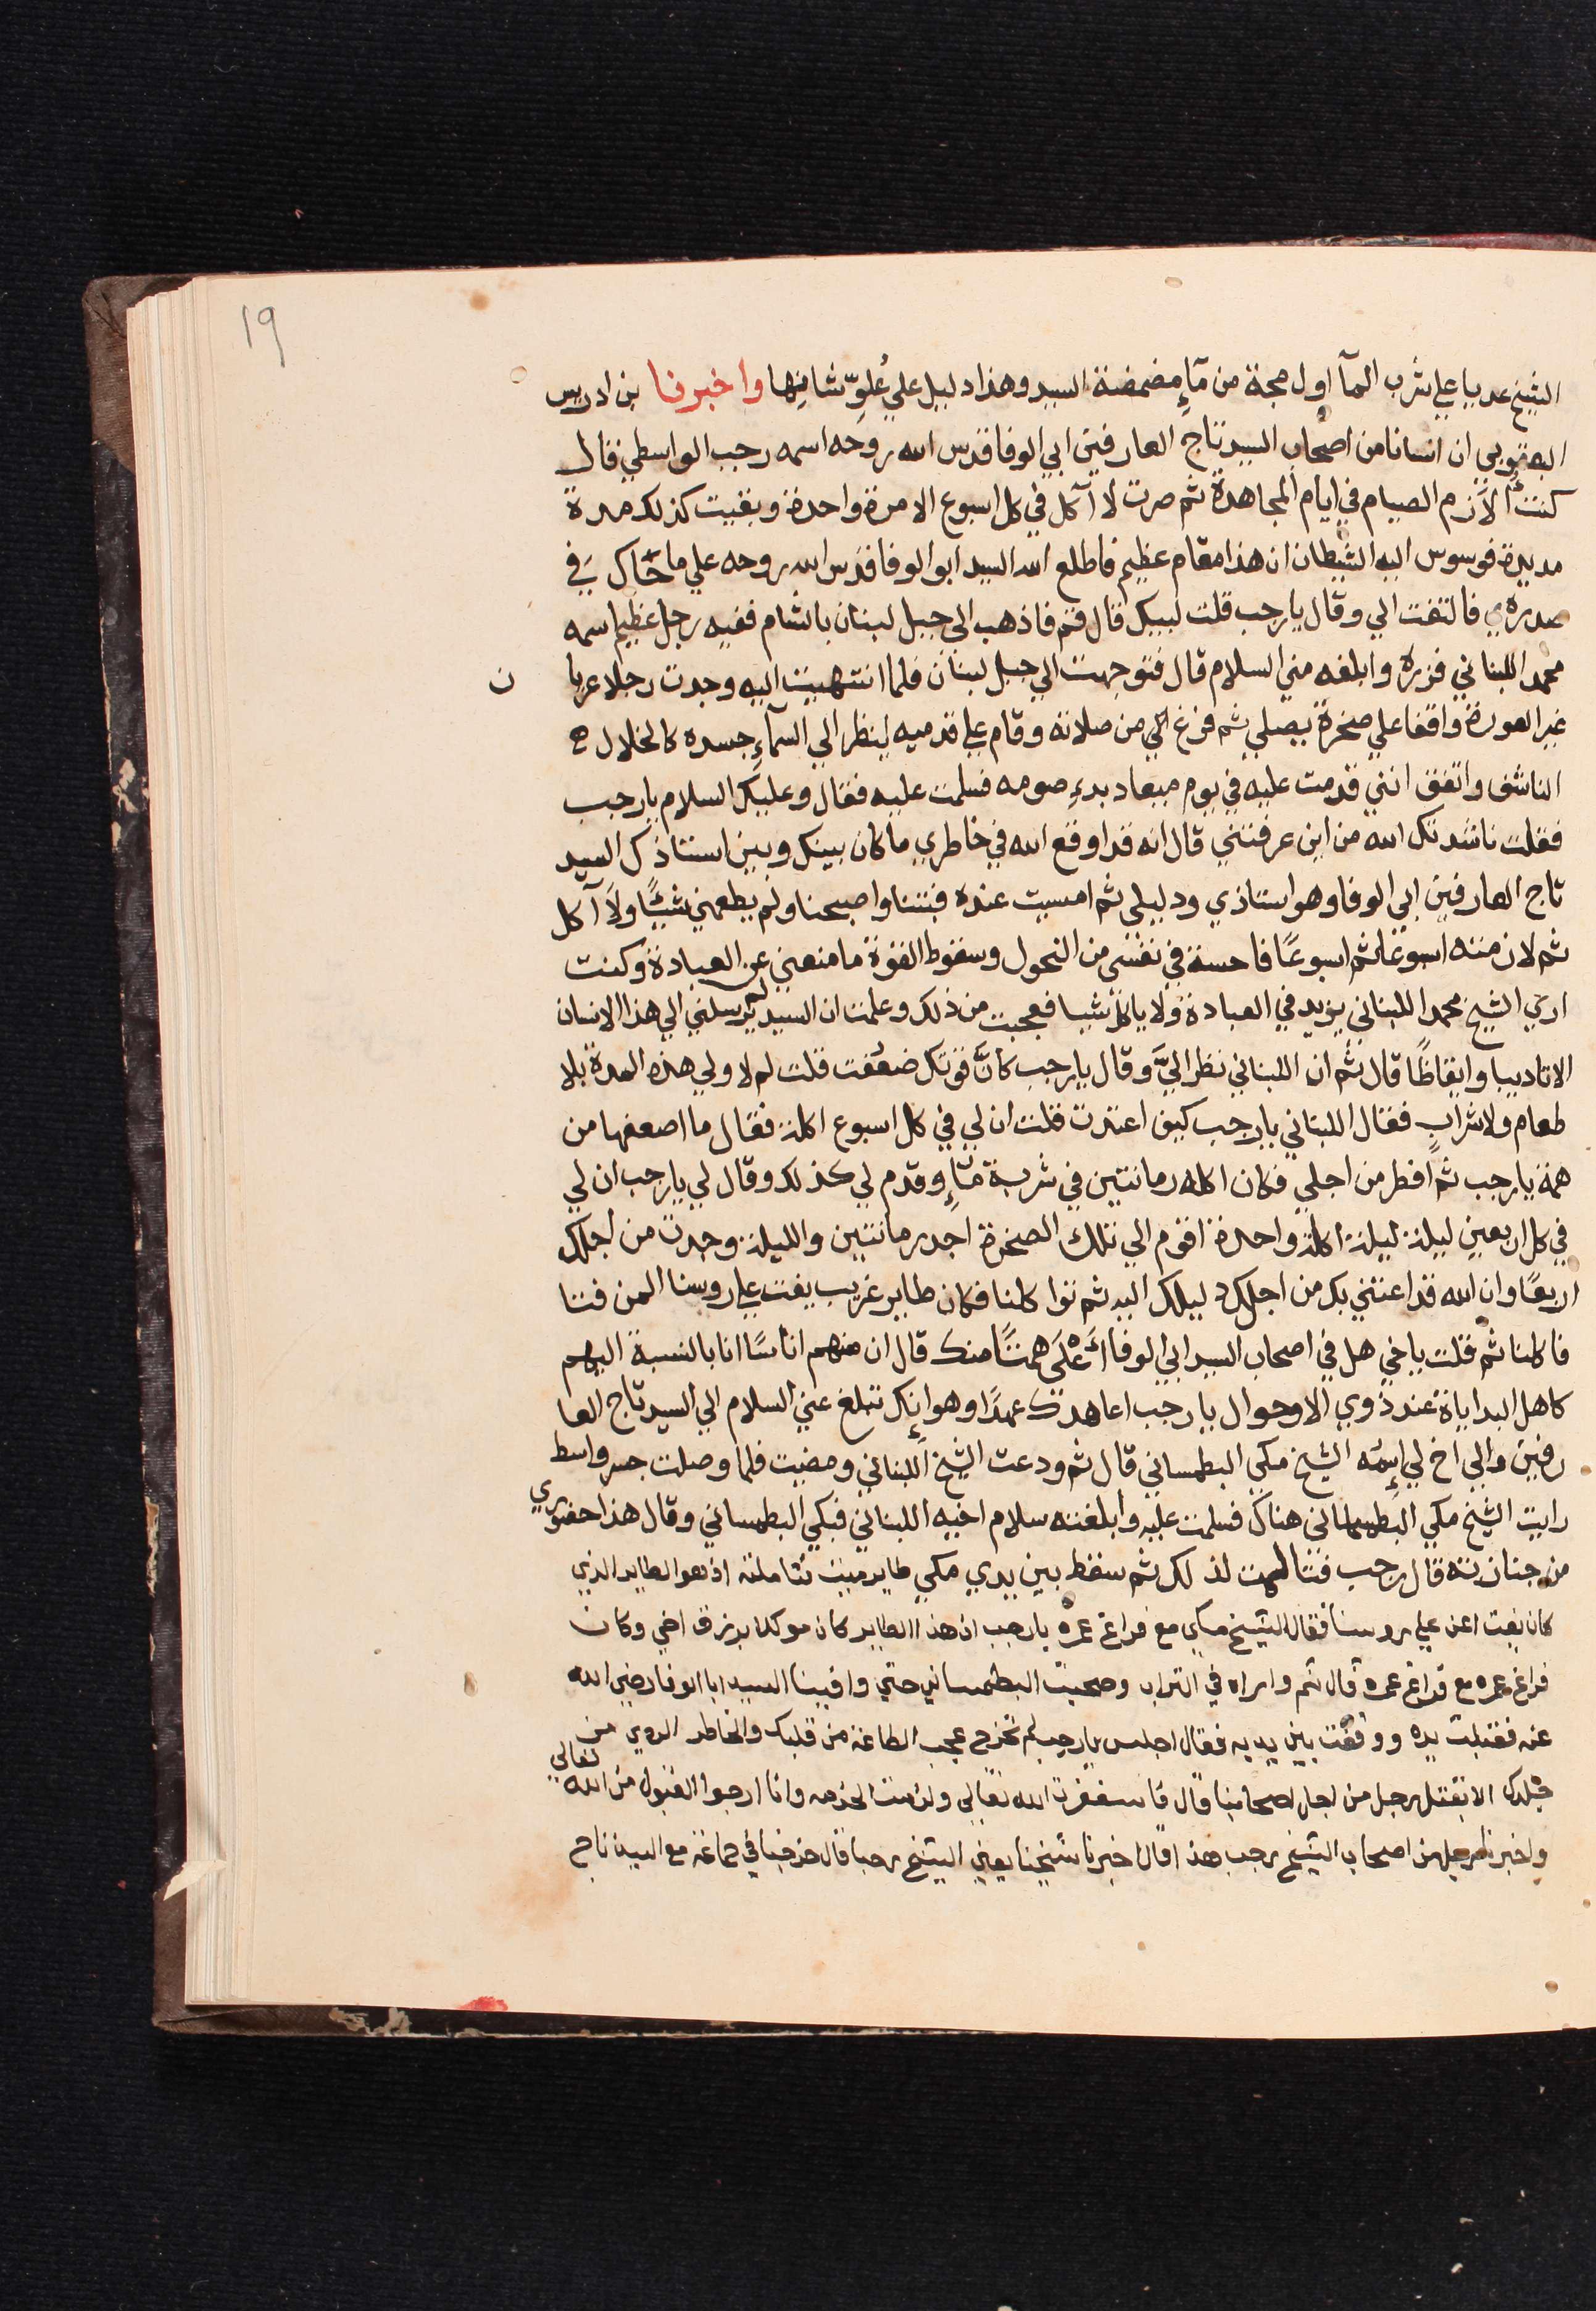 19
الشيخ عديا علي شرب المآ اول مجة من مآءٍ مضمضة السيد وهذا دليل علي عُلوِّ شانِها واخبرنا بن ادريس
اليعقوبي ان انسانا من اصحاب السيد تاج العارفين ابي الوفا قدس الله روحه اسمه رجب الواسطي قال
كنتُ الازم الصيام في ايام المجاهدة ثم صرت لا آكل في كل اسبوع الا مرة واحدة وبقيت كذلك مدة
مديدة فوسوس اليه الشيطان ان هذا مقام عظيم فاطلع الله السيد ابو الوفا قدس الله روحه علي ما حاك في
صدره فالتفت الي وقال يا رجب قلت لبيك قال قم فاذهب الى جبل لبنان بالشام ففيه رجل عظيم اسمه
محمد اللبناني فزره وابلغه مني السلام قال فتوجهت الي جبل لبنان فلما انتهيت اليه وجدت رجلا عريا ن
غير العورة واقفا علي صخرة يصلي ثم فرغ الي من صلاته وقام علي قدميه ينظر الي السمآءِ جسده كالخلال
الناشف واتفق انني قدمت عليه في يوم ميعاد بدءِ صومه فسلمت عليه فقال وعليك السلام يا رجب
فقلت ناشدتك الله من اين عرفتني قال انه قد اوقع الله في خاطري ما كان بينك وبين استاذك السيد
تاج العارفين ابي الوفا وهو استاذي ودليلي ثم امسيت عنده فبتنا واصبحنا ولم يطعمني شيئًا ولا آكل
ثم لان منه اسبوعًا ثم اسبوعًا فاحسة في نفسي من النحول وسقوط القوة ما منعني عن العبادة وكنت
اري الشيخ محمد اللبناني يزيد في العبادة ولا ياكل شيا فعجبت من ذلك وعلمت ان السيد لم يرسلني الي هذا الانسان
الا تاديبا وايقاظًا قال ثم ان اللبناني نظر اليَّ وقال يا رجب كانَّ قوتك ضعفت قلت لم لا ولي هذه المدة بلا
طعام ولا شرابٍ فقال اللبناني يا رجب كيف اعتدت قلت ان لي في كل اسبوع اكلة فقال ما اضعفها من
همة يا رجب ثم افطر من اجلي فكان اكله رمانتين في شربة مآءٍ وقدم لي كذلك وقال لي يا رجب ان لي
في كل اربعين ليلة ليلة اكلة واحدة اقوم الي تلك الصخرة اجد رمانتين والليلة وجدت من اجلك
اربعًا وان الله قد اعتني بك من اجلك دليلك اليه ثم نوا كلنا فكان طاير غريب يفت علي روسنا المن فتا
فاكلنا ثم قلت يا خي هل في اصحاب السيد ابي الوفا أَعْلَى همتًا منك قال ان منهم اناسًا انا بالنسبة اليهم
كاهل البداياة عند ذوي الاوحوال يا رجب اعاهدك عهدًا وهو انك تبلغ عني السلام الي السيد تاج العا
رفين والي اخ لي اِسمُه الشيخ مكي البطمساني قال ثم ودعت الشيخ اللبناني ومضيت فلما وصلت جسر واسط
رايت الشيخ مكي البطمساني هناك فسلمت عليه وابلغته سلام اخيه اللبناني فبكي البطمساني وقال هذا حضوري
من جنازته قال رجب فتالمت لذلك ثم سقط بين يدي مكي طاير ميت تتاملته اذ هو الطاير الذي
كان يفت اعن علي روسنا فقال الشيخ مكي مع فراغ عمره يا رجب ان هذا الطاير كان موكلا برزق اخي وكان
فراغ عمره مع فراغ عمره قال ثم واراه في التراب وصحبت البطمساني حتي وافينا السيد ابا الوفا رضي الله
عنه فقبلت يده ووقفت بين يديه فقال اجلس يا رجب لم تخرج عجب الطاعة من قلبك والخاطر الردي من
قبلك الا بقتل رجل من اجل اصحابنا قال فاستغفرت الله تعالي ولزمت الخدمه وانا ارجوا القبول من الله تعالي
واخبرنا رجل من اصحاب الشيخ رجب هذا قال اخبرنا شيخنا يعني الشيخ رجبا قال خرجنا في جماعة مع السيد تاج